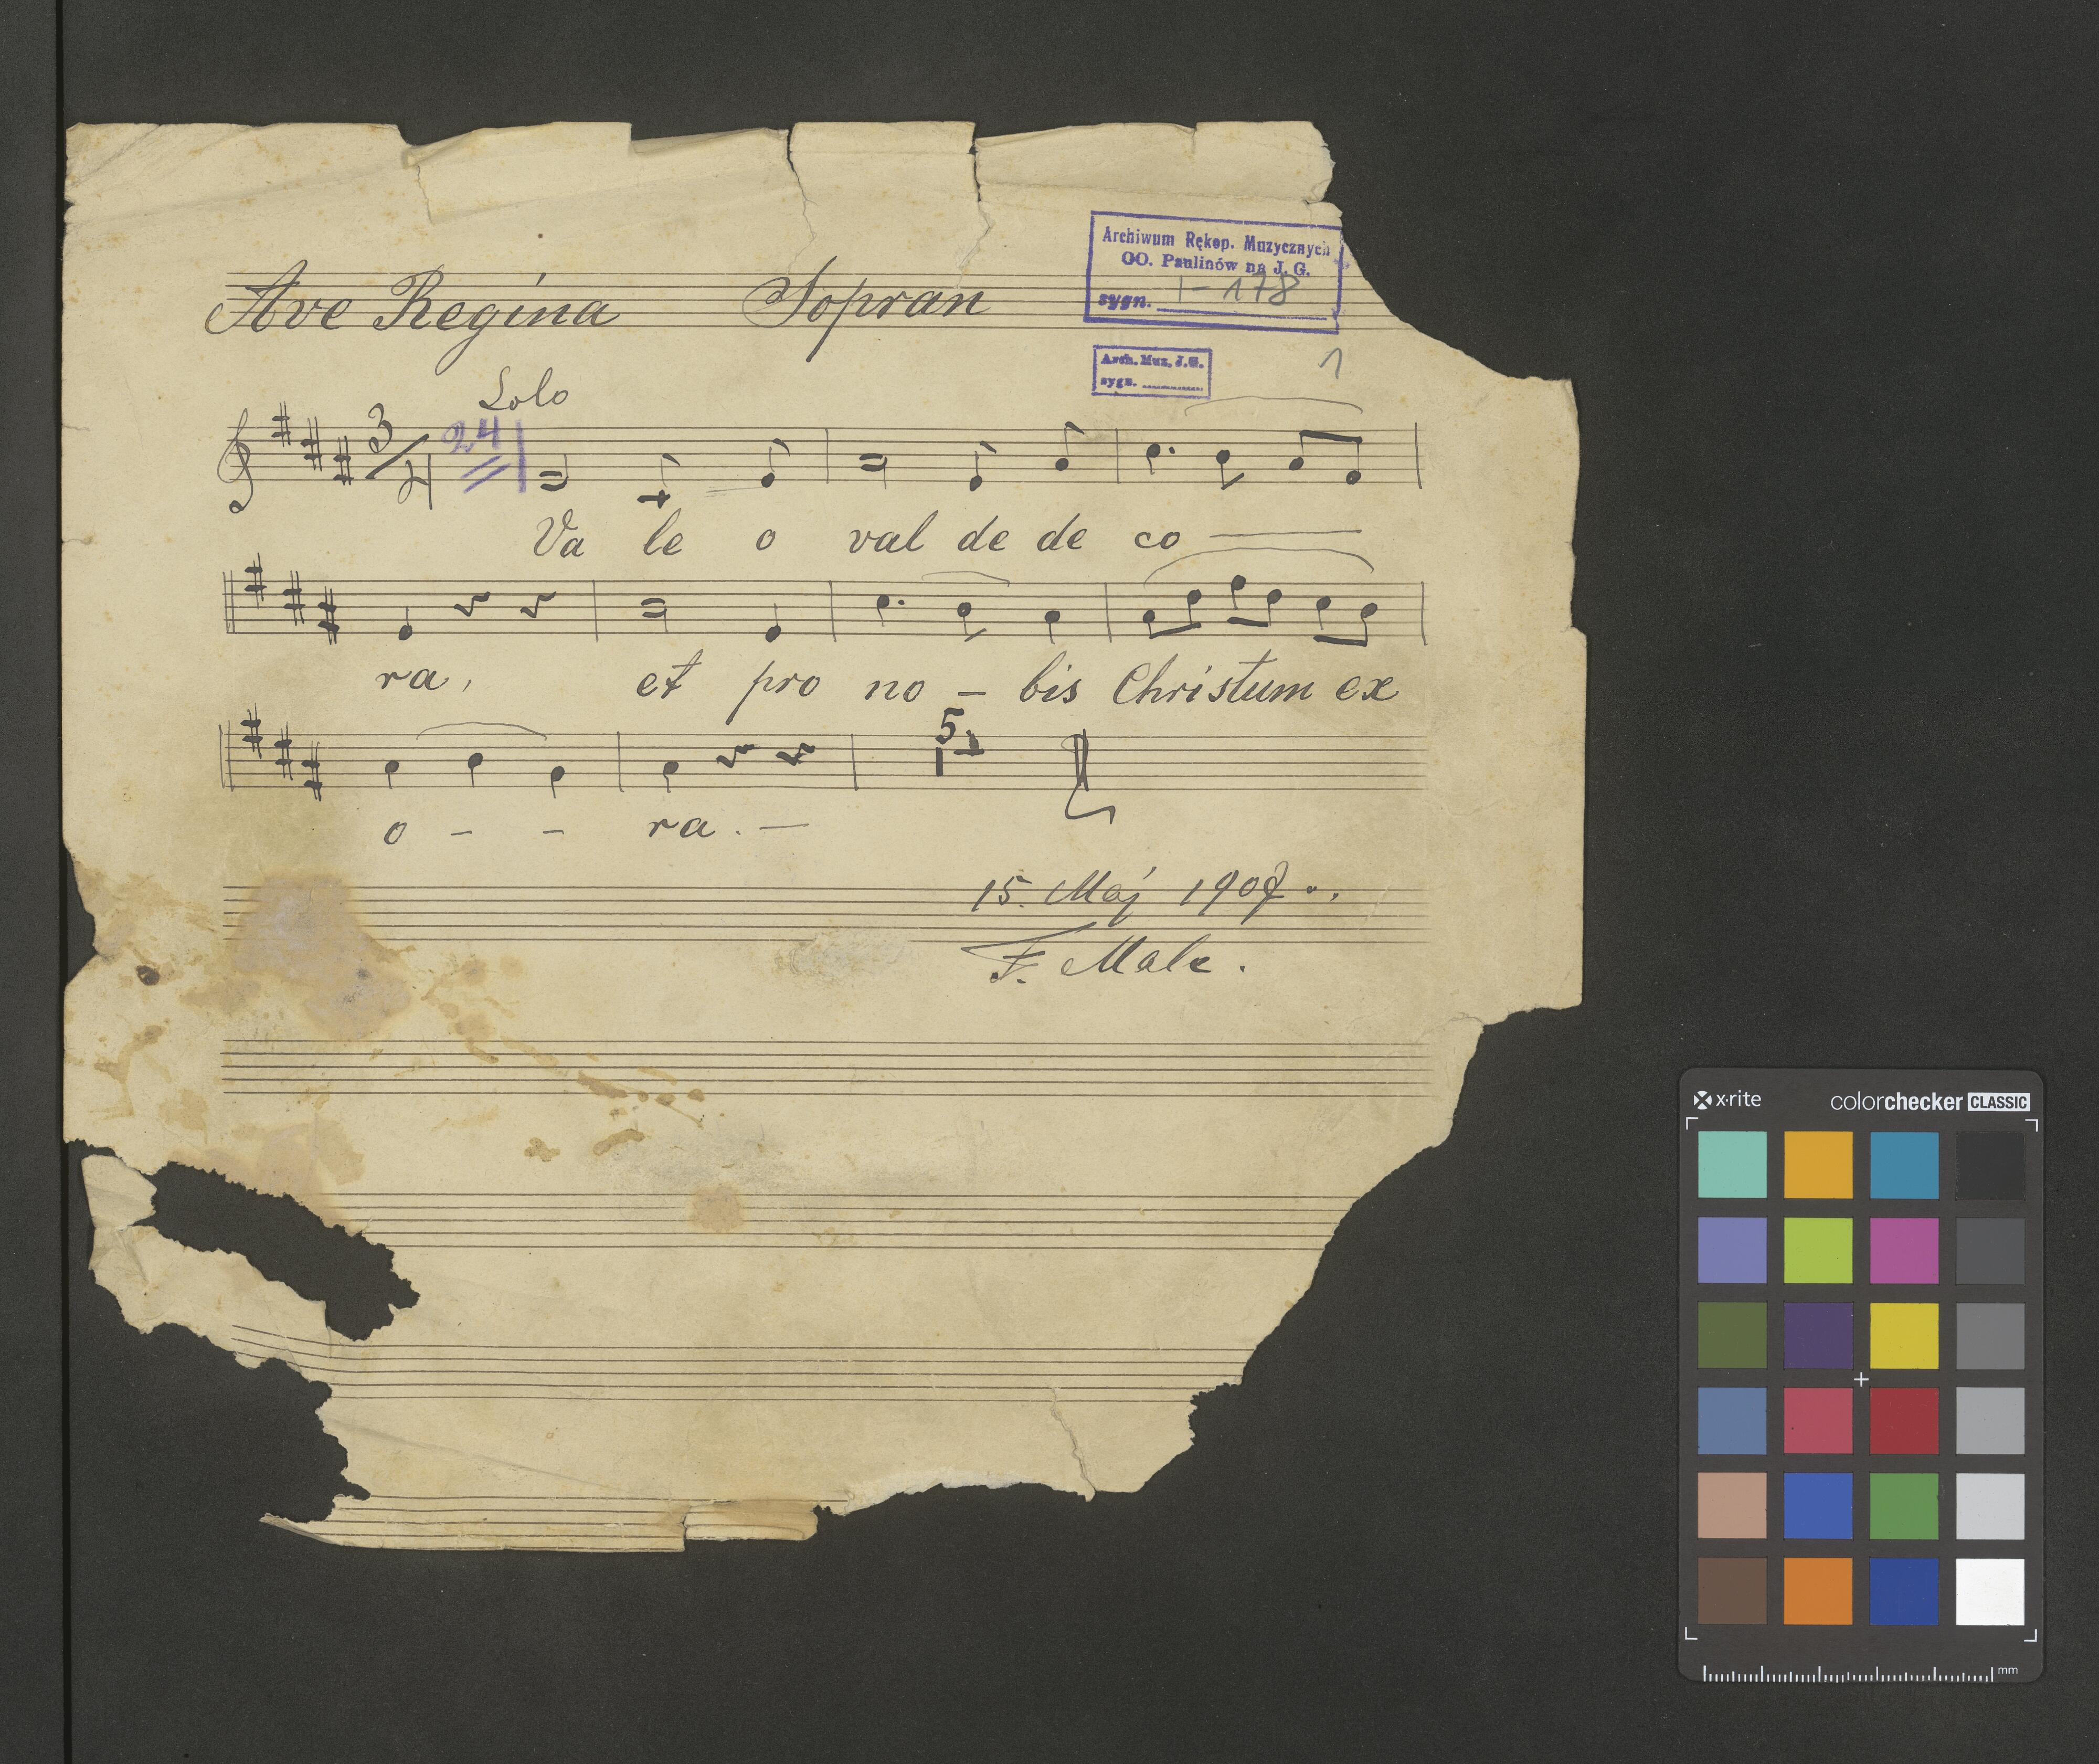 Archiwum Rękop. Muzycznych
OO. Paulinów na J. G.
sygn. I-178
Ave Regina Sopran
Arch. Muz. J.G.
sygn.
1
Solo
3/4 24
Va le o val de de co
ra, et pro no - bis Christum ex
5
o - - ra. —
15. Maj 1907
F. Male.
x·rite colorchecker CLASSIC
mm